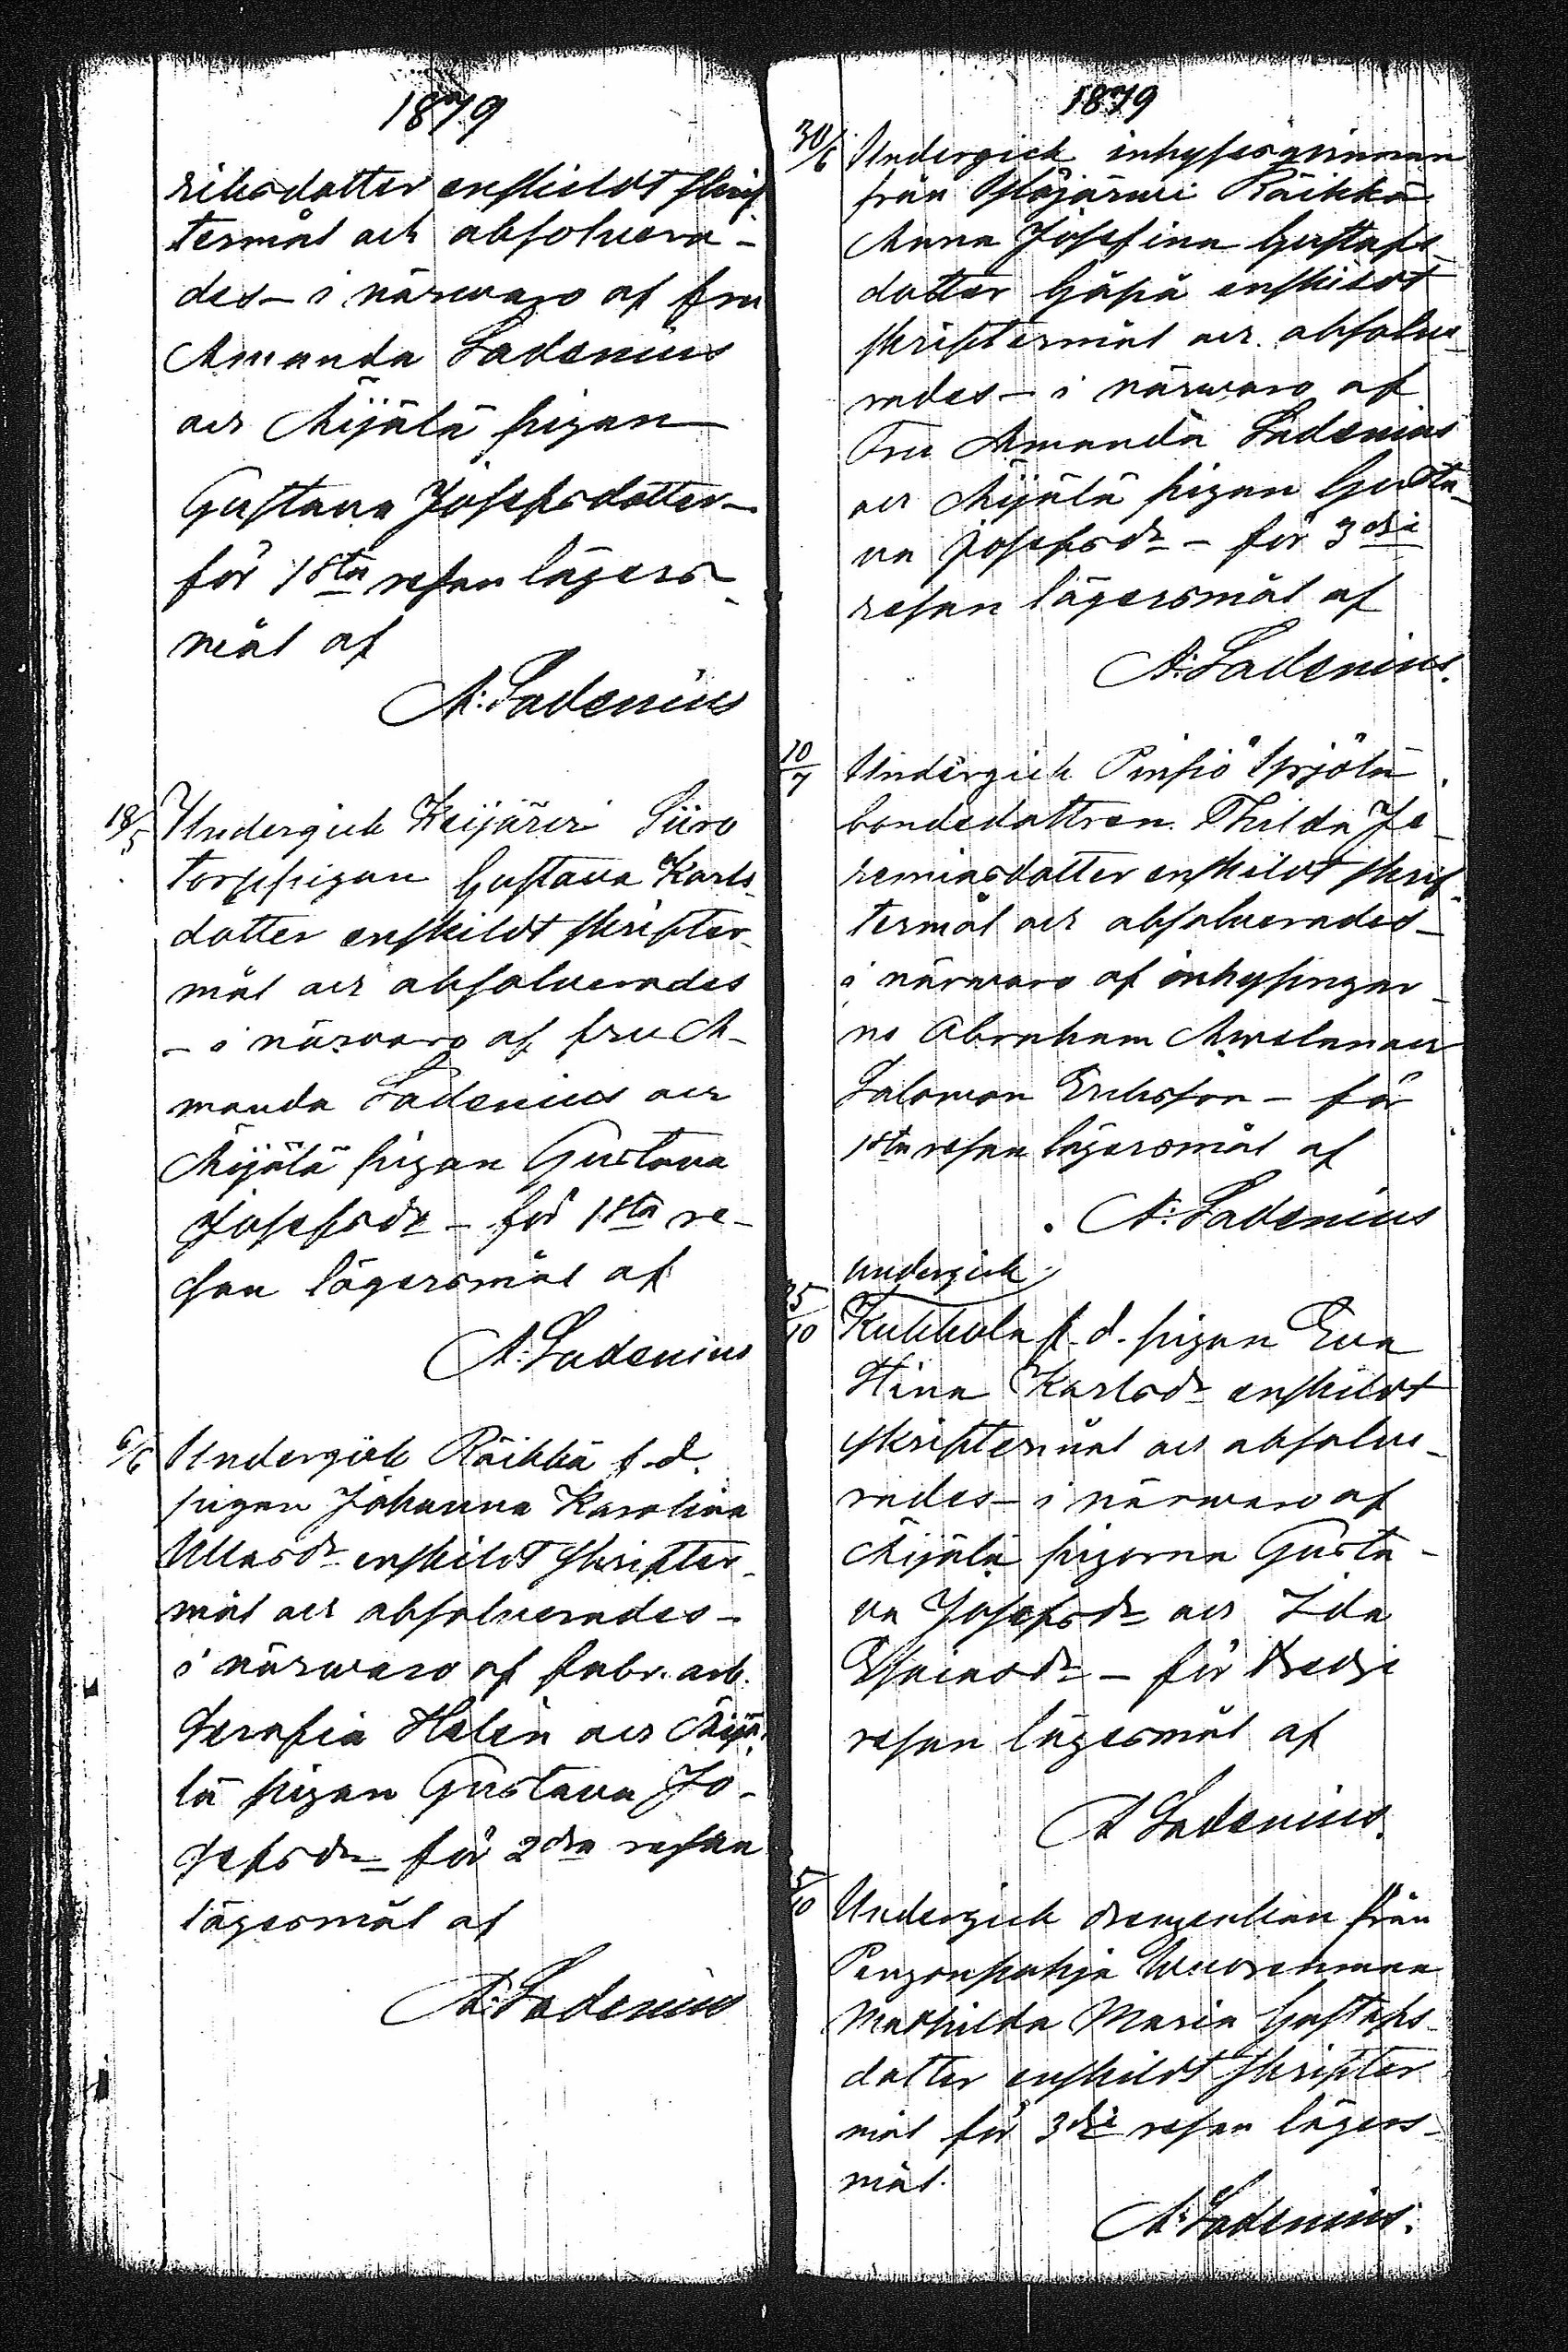 1879
riksdotter enskildt skrif
termål och absolvera-
des – i närwaro af fru
Amanda Ladenius
och Äijälä pigan
Gustava Josephsdotter –
för 1sta resan lägers-
mål af
A: Ladenius
18/5 Undergick Keijäri Siiro
torppigan Gustava Karls
dotter enskildt skrifter-
mål och absolverades
– i närvaro af fru A-
manda Ladenius och
Äijälä pigan Gustava
Josefsdr – för 1sta re-
san lägersmål af
A: Ladenius
6/6 Undergick Räikkä f.d.
pigan Johanna Karolina
Ullasdr enskildt skrifter-
mål och absolverades –
i närwaro af fabr. arb.
Serafia Helén och Äijä-
lä pigan Gustava Jo-
sefsdr – för 2dra resan
lägersmål af
A: Ladenius
1879
30/6 Undergick inhyses qvinnan
från Ylöjärwi Räikkä
Anna Josefina Gustafs-
dotter Gåpå enskildt
skriftermål och absolve-
rades – i närwaro af
Fru Amanda Ladenius
och Äijälä pigan Gusta-
va Josefsdr – för 3dje
resan lägersmål af
A: Ladenius.
10/7 Undergick Pinsiö Yrjölä
bondedottren Thilda Je-
remiasdotter enskildt skrif-
termål och absolverades –
i närwaro af inhysingar-
ne Abraham Awelan och
Salomon Eriksson – för
1sta resan lägersmål af
A: Ladenius
Undergick
25/10 Kukkola f.d. pigan Eva
Stina Karlsdr enskildt
skriftermål och absolve-
rades – i närwaro af
Äijälä pigorna Gusta-
va Josefsdr och Ida
Esaiasdr – för tredje
resan lägersmål af
A Ladenius.
5/10 Undergick drengenkan från
Penzonpohja Wuorenmaa
Mathilda Maria Gustafs-
dotter enskildt skrifter
mål för 3dje resan lägers-
mål.
A: Ladenius.